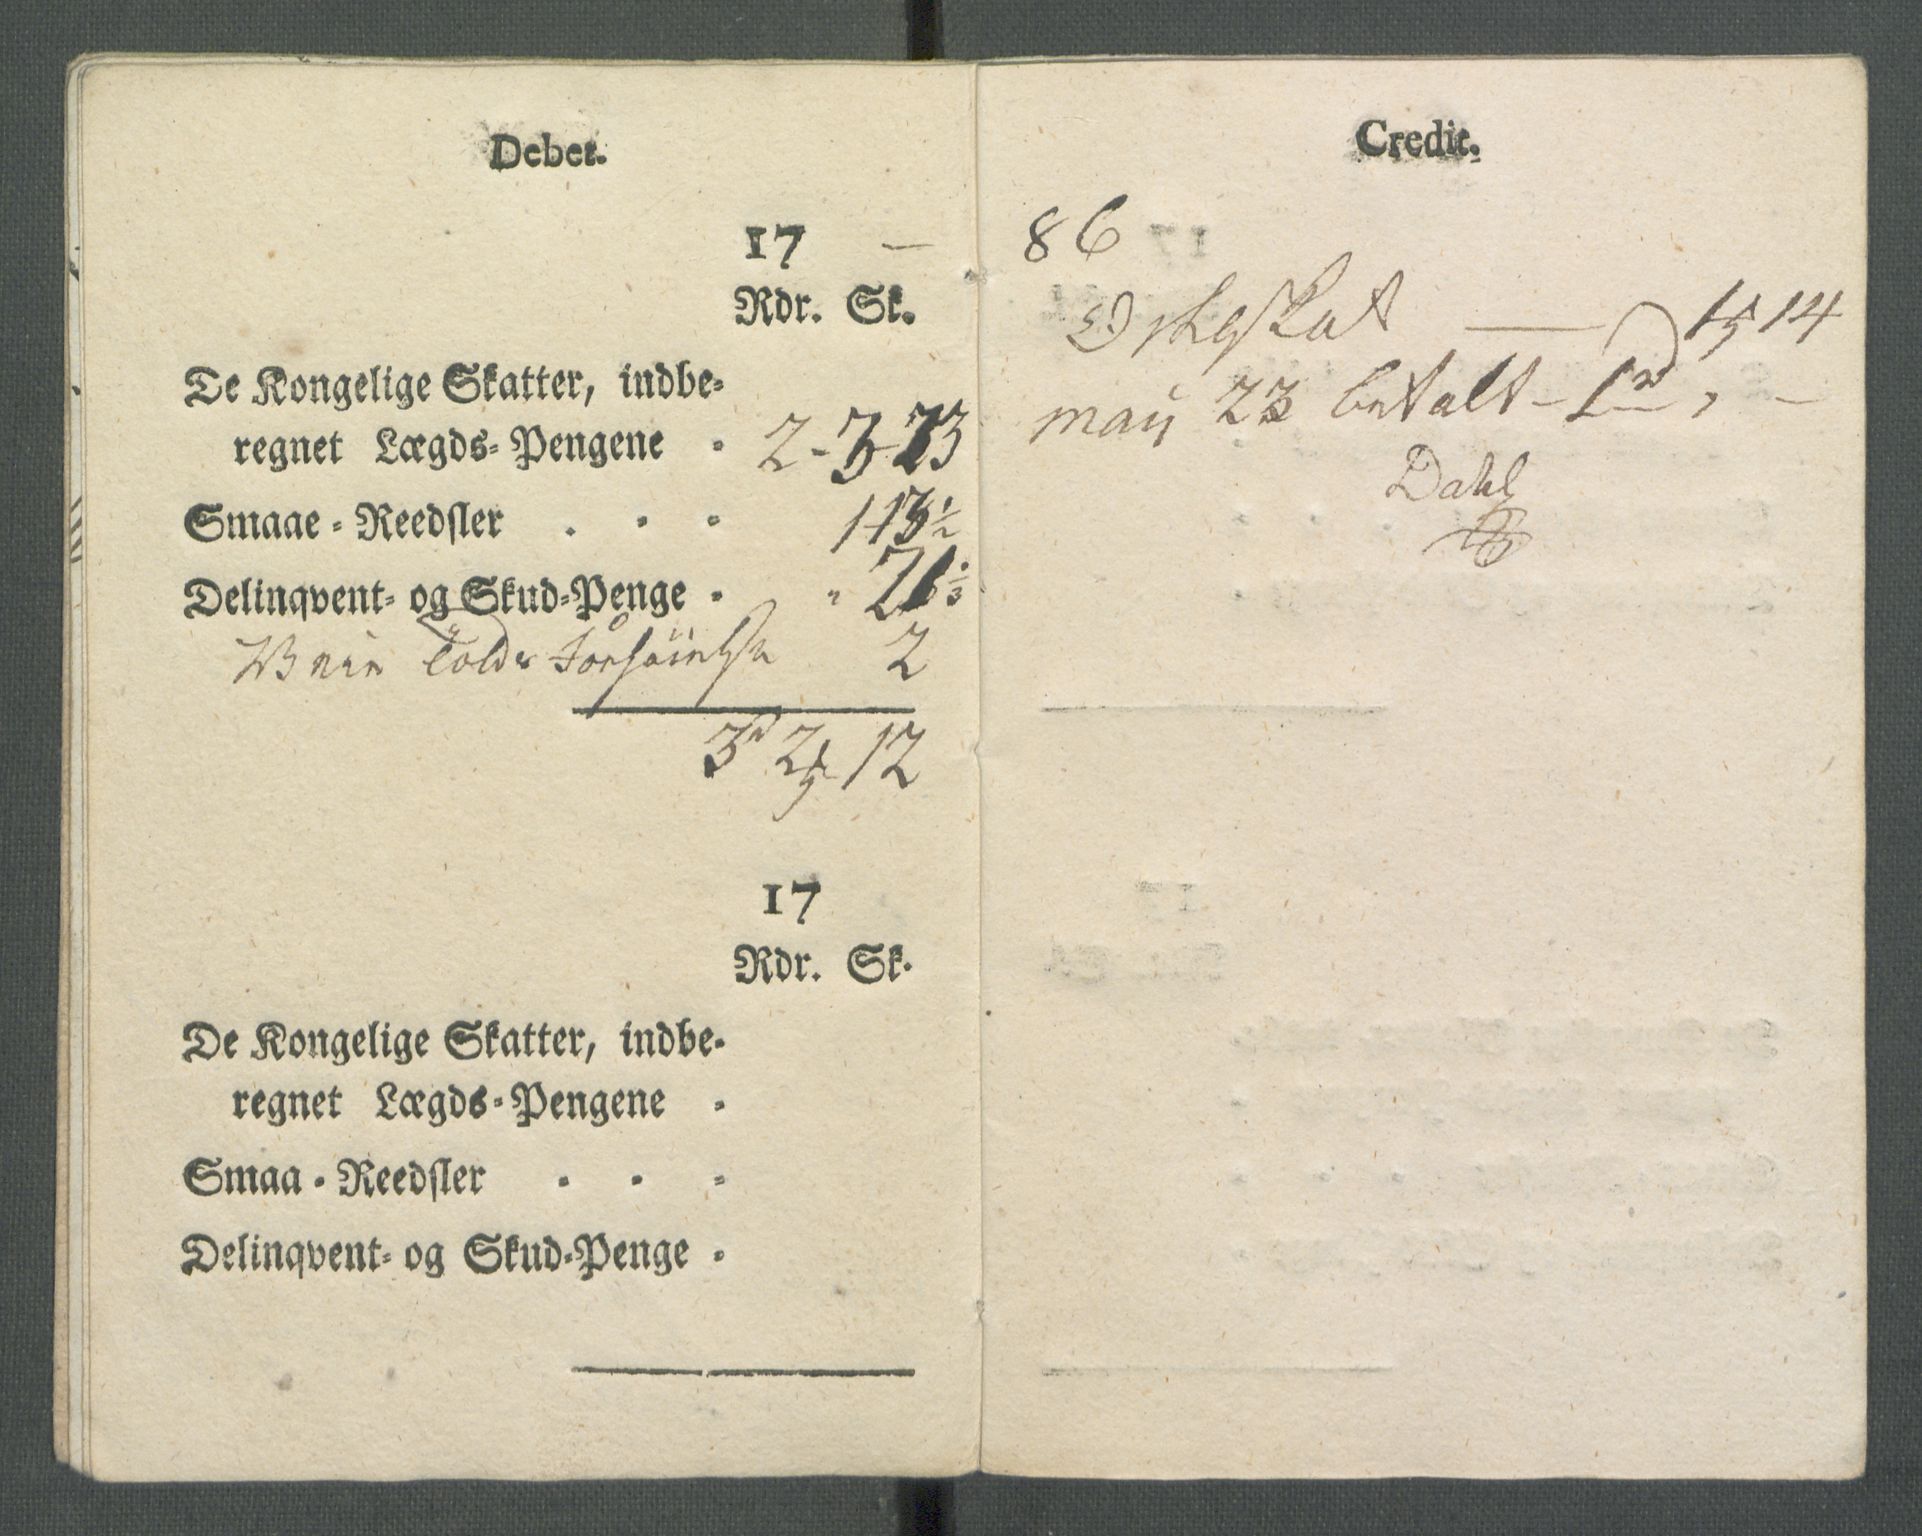 Debet.
17 —
Rdr. Sk.
De Kongelige Skatter, indbe-
regnet Lægds-Pengene - 2-3-23
Smaae-Reedsler . - - 1-13½
Delinqvent- og Skud-Penge -
Told 2
3 2 12
17
Rdr. Sk.
De Kongelige Skatter, indbe-
regnet Lægds-Pengene -
Smaa-Reedsler - - -
Delinqvent- og Skud-Penge -
Credit.
86
— 14
may 23 betalt – 1 rd, –
Dahl